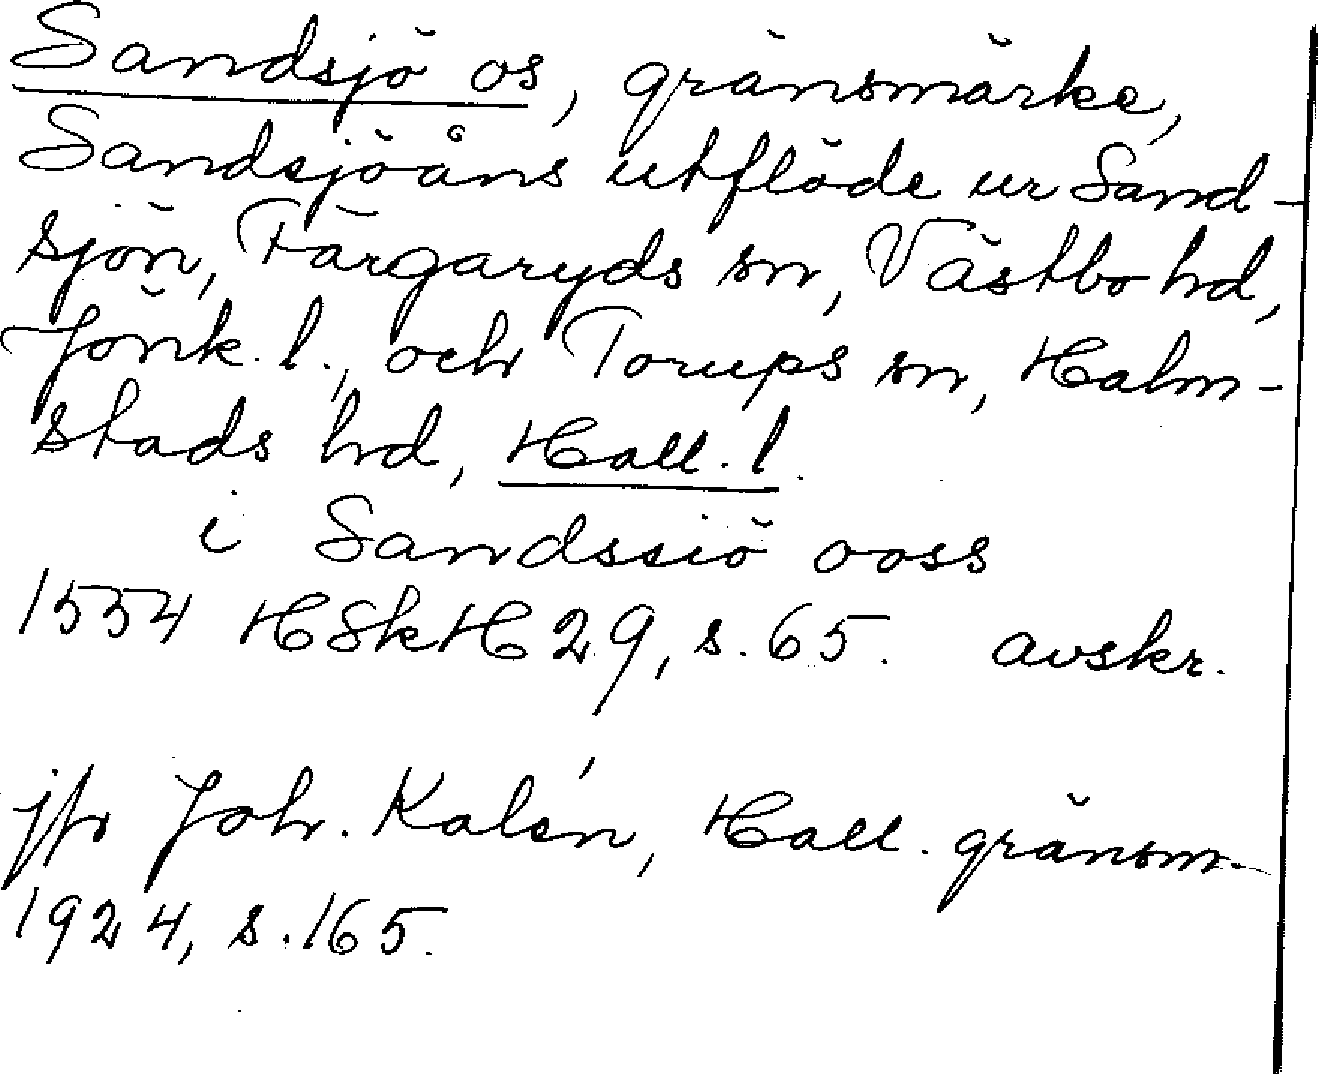 Sandsjö os, gränsmärke,
Sandsjöåns utflöde ur Sand-
sjön, Färgaryds sn, Västbo hd,
Jönk. l., och Torups sn, Halm-
stads hd, Hall. l.
i Sandssiö ooss
1554 HSkH 29, s. 65. avskr.
jfr Joh. Kalén, Hall. gränsm.
1924, s. 165.